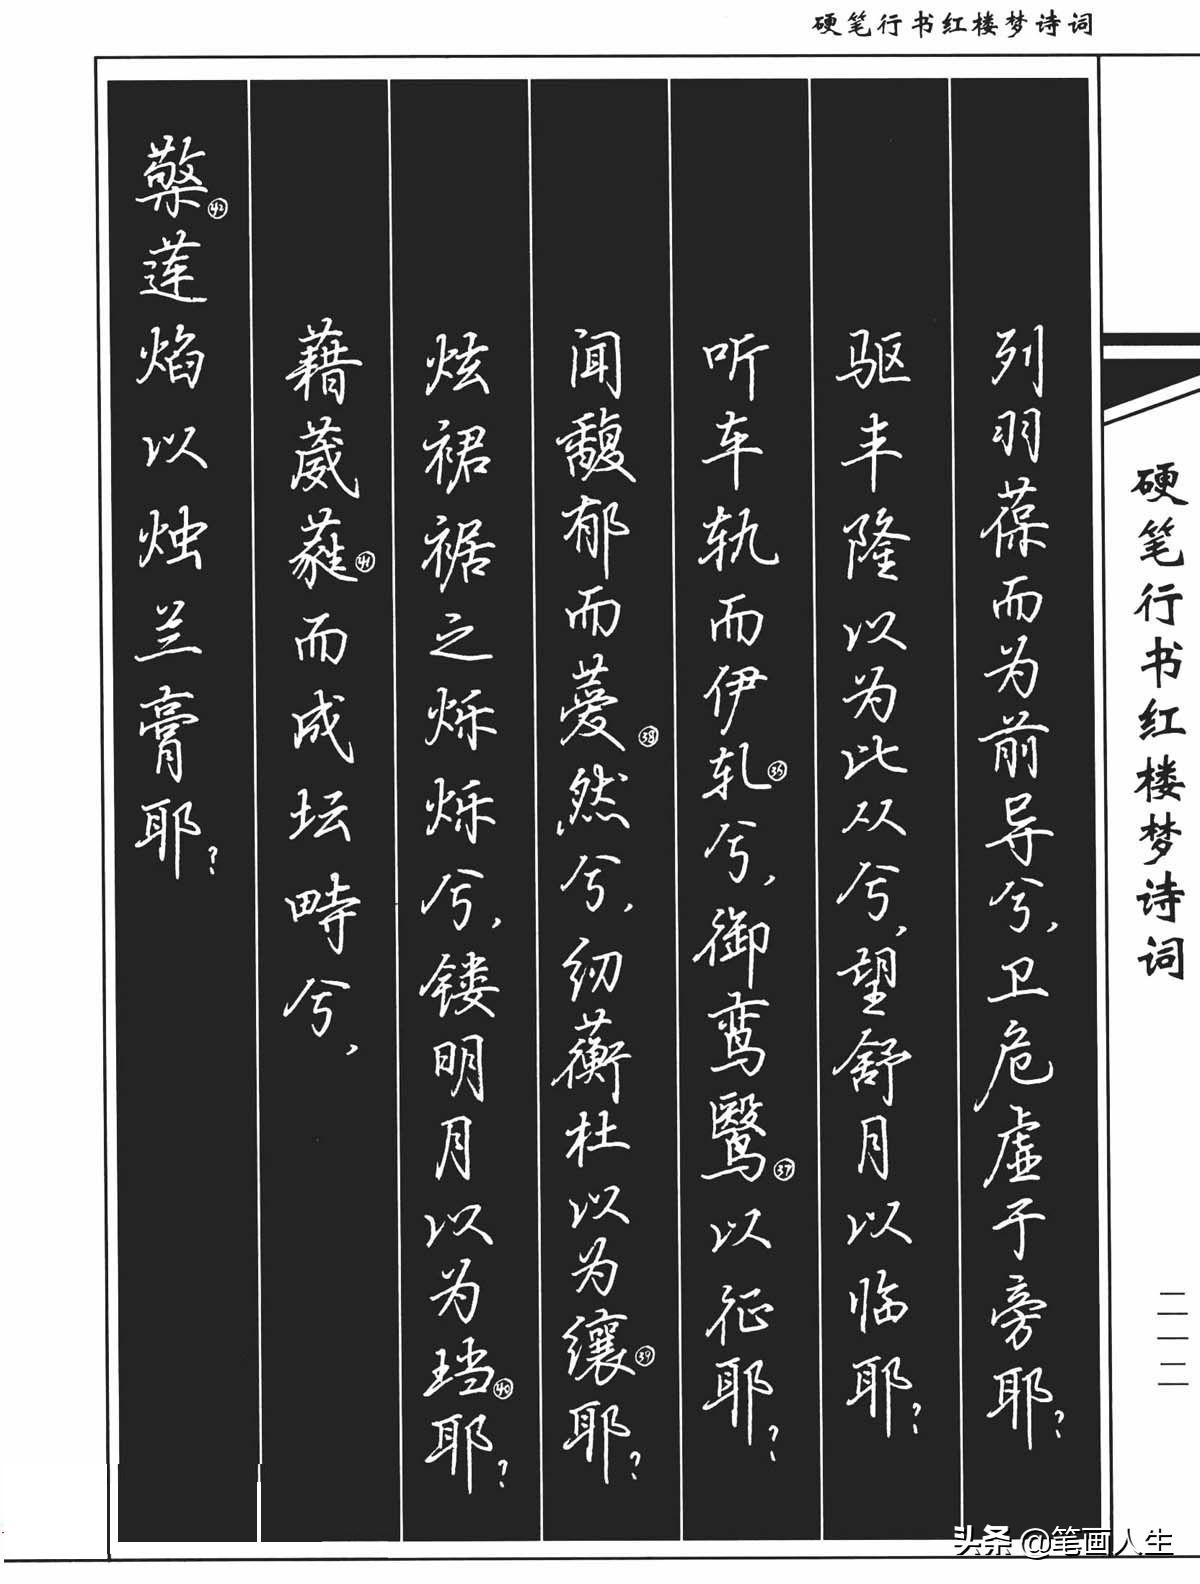 硬笔行书红楼梦诗词
列羽葆而为前导兮,卫危虚于旁耶?
驱丰隆以为此从兮,望舒月以临耶?
听车轨而伊轧㉟兮,御鸾鹥㊲以征耶?
闻馥郁而薆㊳然兮,纫蘅杜以为纕㊴耶?
炫裙裾之烁烁兮,镂明月以为珰㊵耶?
藉葳蕤㊶而成坛畤兮,
檠㊷莲焰以烛兰膏耶?
硬笔行书红楼梦诗词
二一二
头条 @笔画人生